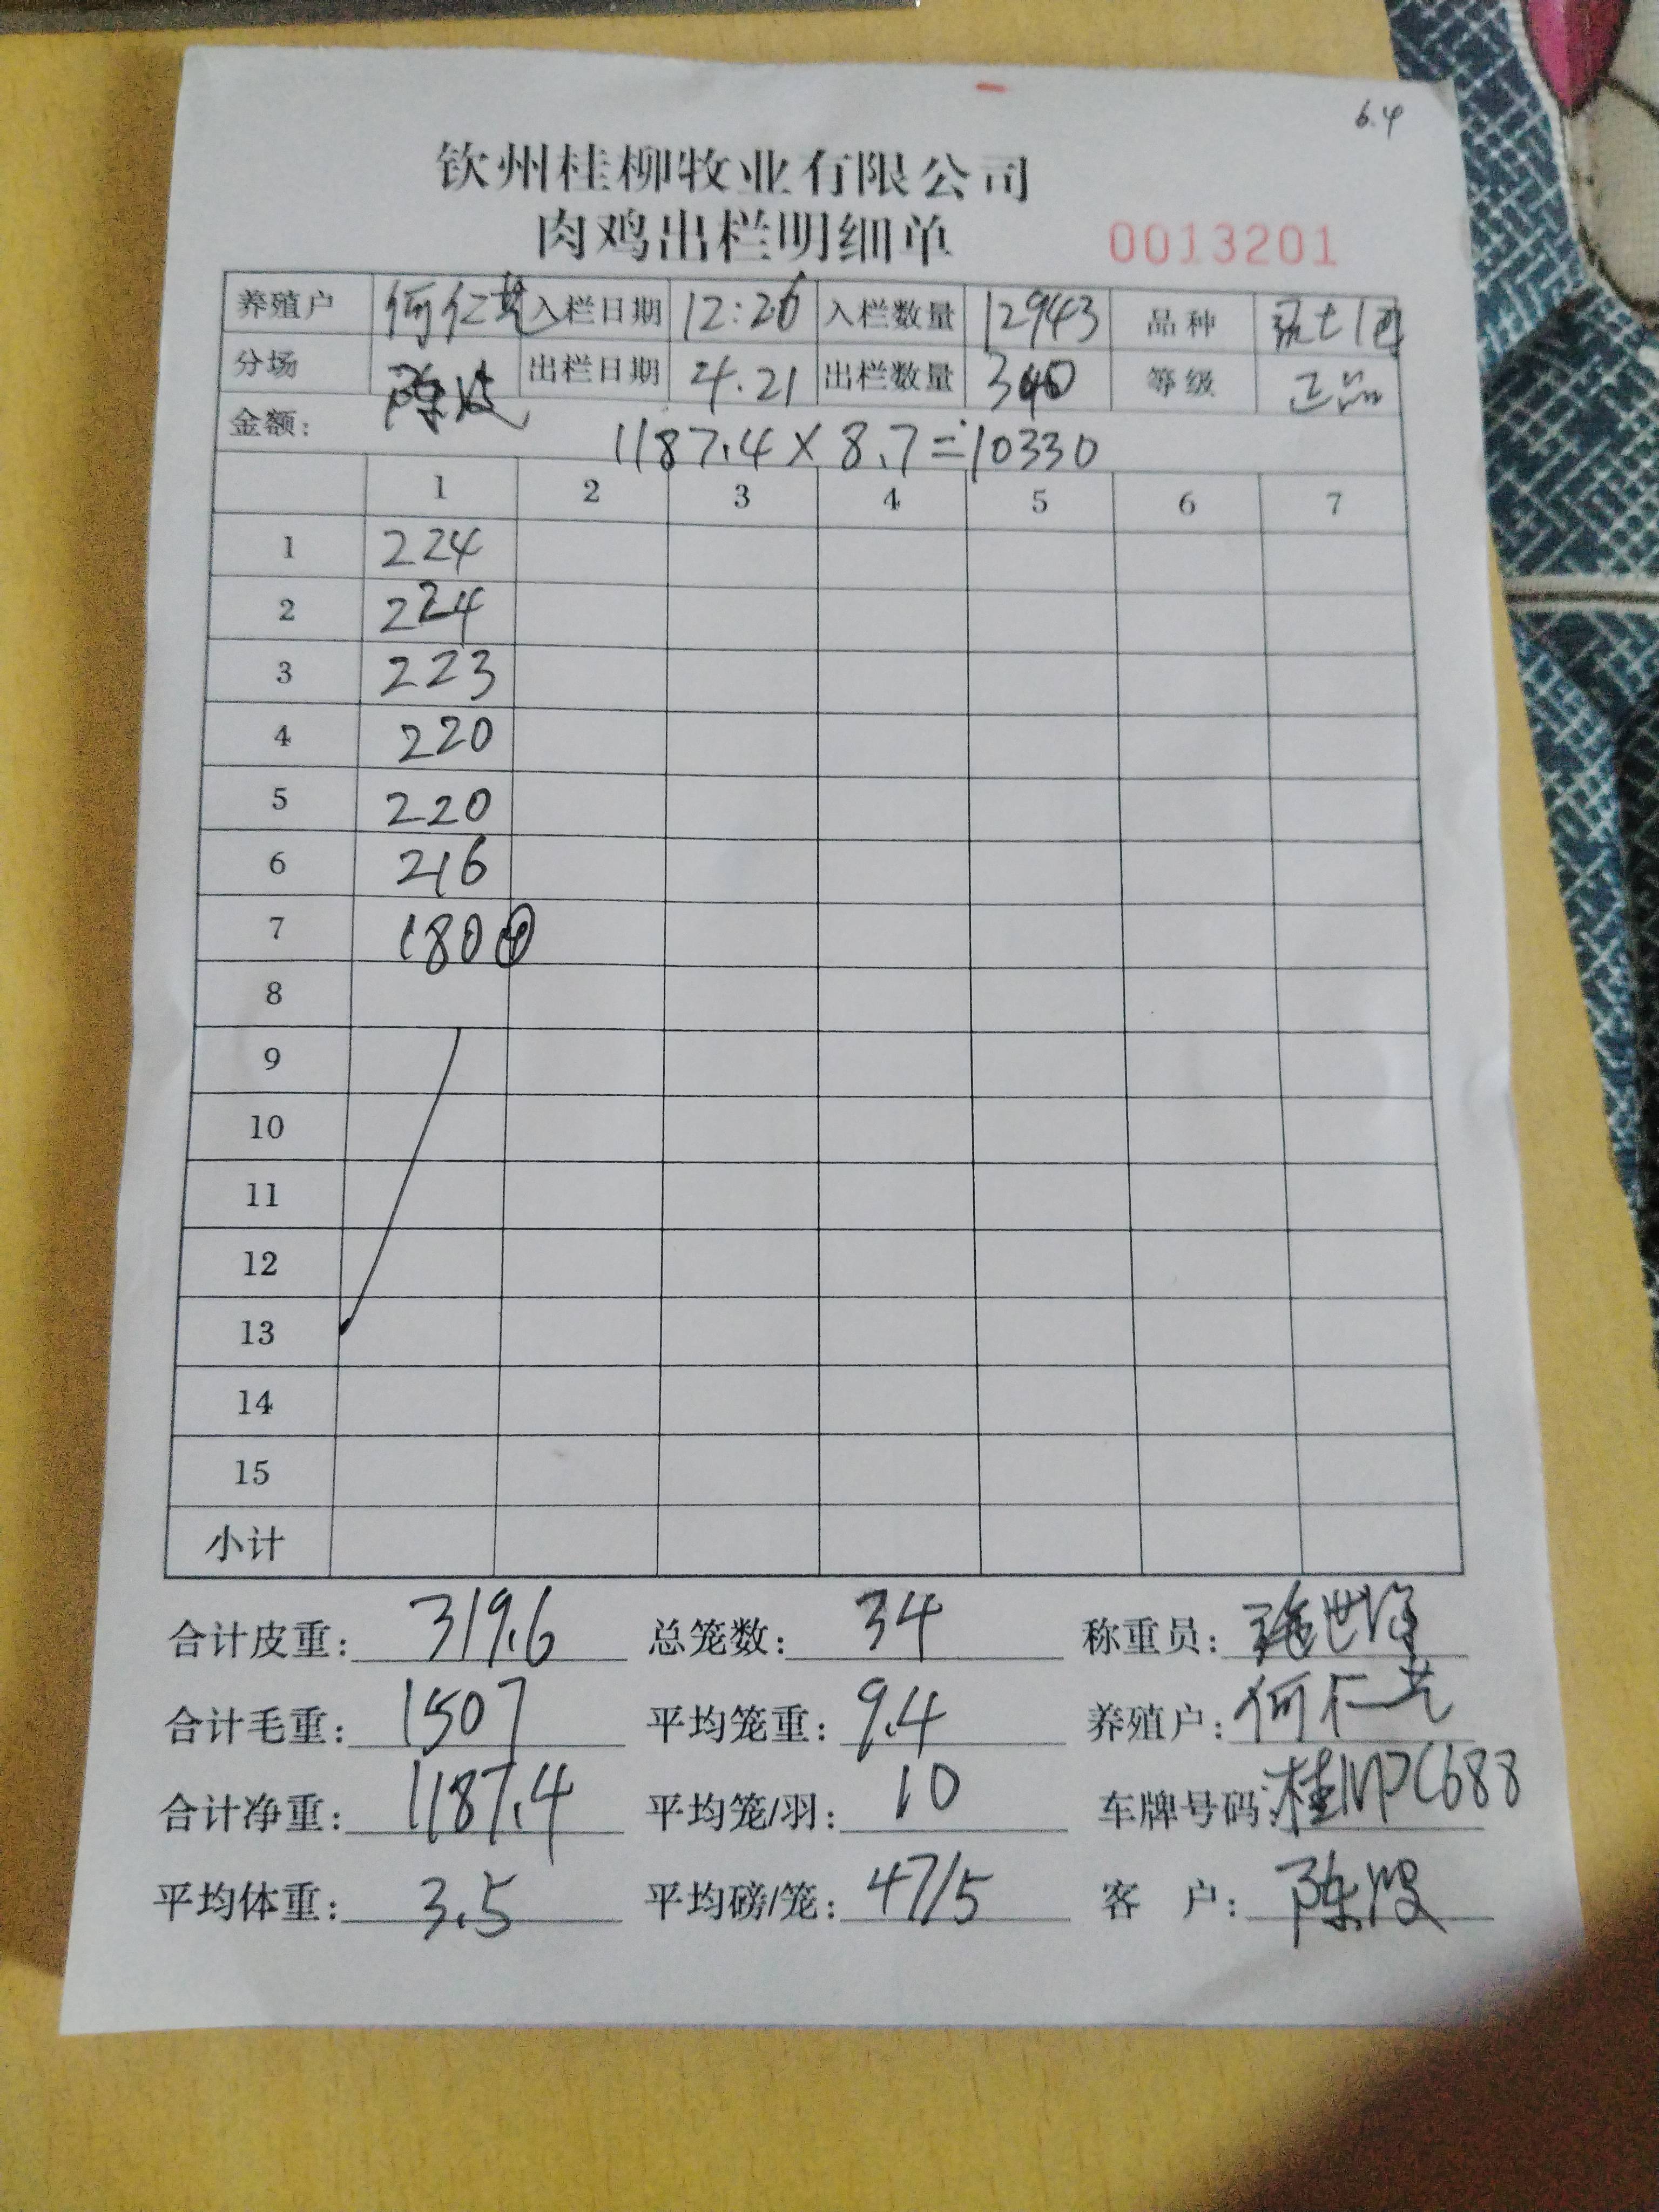 6.4
钦州桂柳牧业有限公司
肉鸡出栏明细单 0013201
养殖户 何仁芝 入栏日期 12:26 入栏数量 12943 品种
分场 陈波 出栏日期 4.21 出栏数量 340 等级 正品
金额: 1187.4×8.7=10330
1 2 3 4 5 6 7
1 224
2 224
3 223
4 220
5 220
6 216
7 180 ④
8
9
10
11
12
13
14
15
小计
合计皮重: 319.6 总笼数: 34 称重员:
合计毛重: 1507 平均笼重: 9.4 养殖户: 何仁芝
合计净重: 1187.4 平均笼/羽: 10 车牌号码:
平均体重: 3.5 平均磅/笼: 47/5 客 户: 陈波